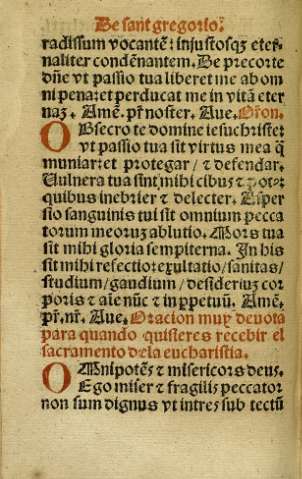 De sant gregorio.
radissum vocantē: injustosqȝ eter-
naliter condēnantem. De precorte
dn̄e vt passio tua liberet me abom
ni pena: et perducat me in vitā eter
naȝ. Amē. pr̄ noster. Aue. Or̄on.
OBsecro te domine iesuchriste:
vt passio tua sit virtus mea q̄
muniar: et protegar / ⁊ defendar.
Uulnera tua sint mihi cibus ⁊ potꝰ
quibus inebrier ⁊ delecter. Asper
sio sanguinis tui sit omnium pecca
torum meoruȝ ablutio. Mors tua
sit mihi gloria sempiterna. In his
sit mihi refectio: exultatio / sanitas /
studium / gaudium / desideriuȝ cor
poris ⁊ aīe nūc ⁊ in ppetuū. Amē.
pr̄. nr̄. Aue. Oracion muy deuota
para quando quisieres recebir el
sacramento dela eucharistia.
OMnipotēs ⁊ misericors deus.
Ego miser ⁊ fragilis peccator
non sum dignus vt intres sub tectū